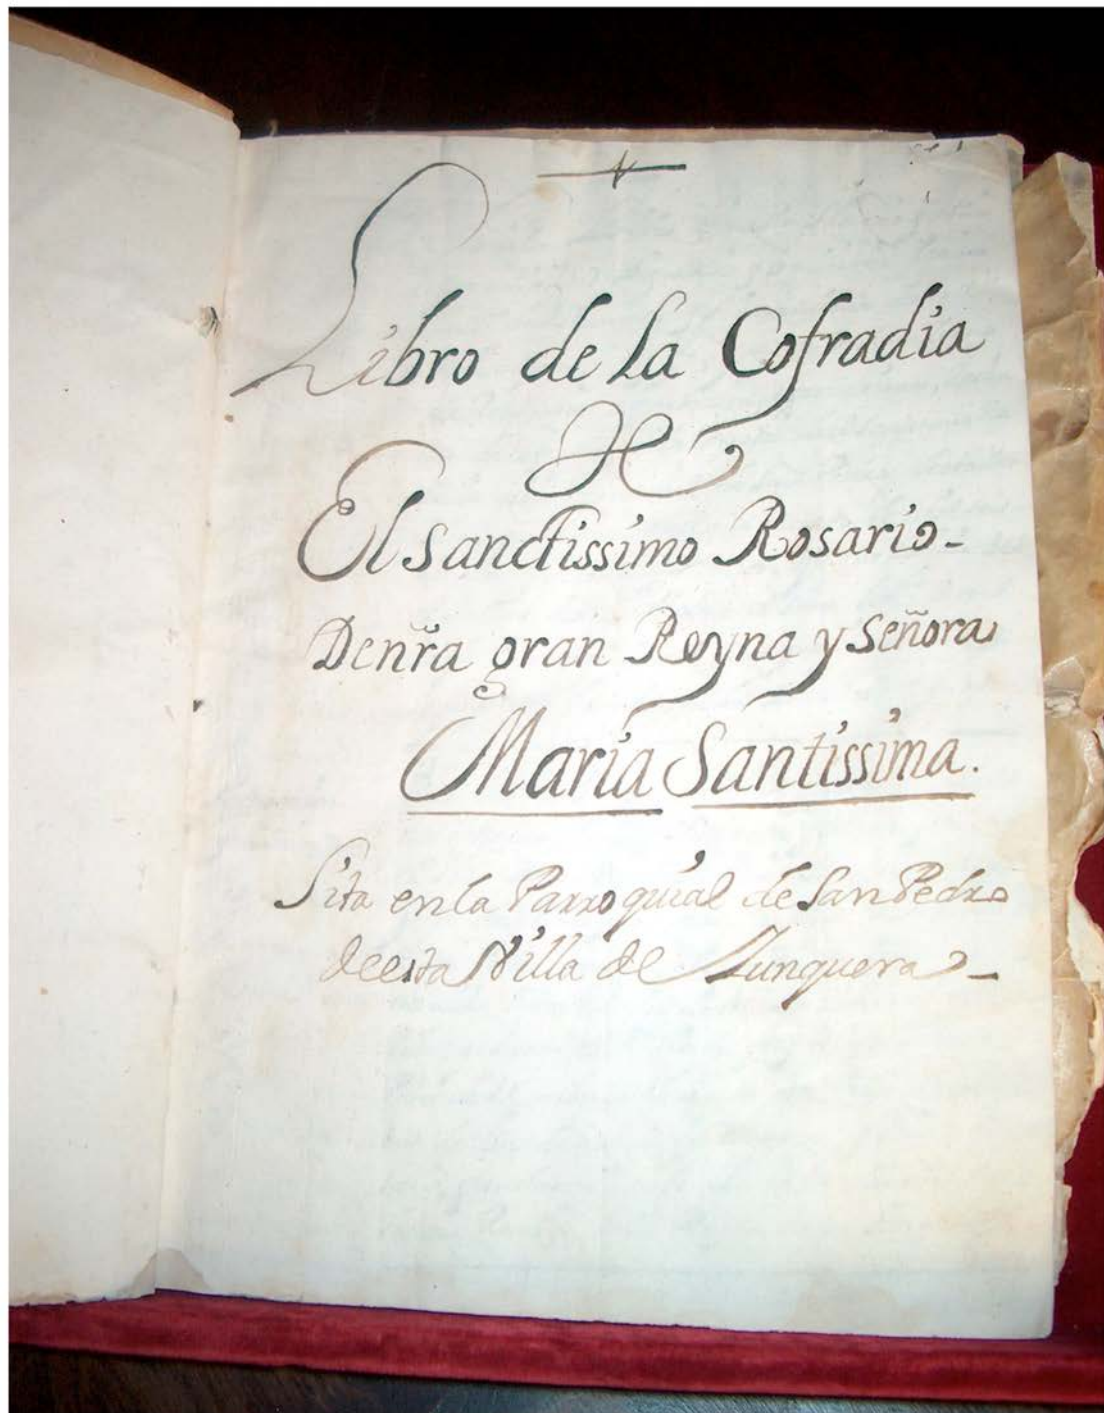 Libro de la Cofradia
De
El Sanctissimo Rosario-
De nr̃a gran Reyna y Señora
Maria Santissima.
Sita en la Parroquial de San Pedro
de esta Villa de Yunquera-